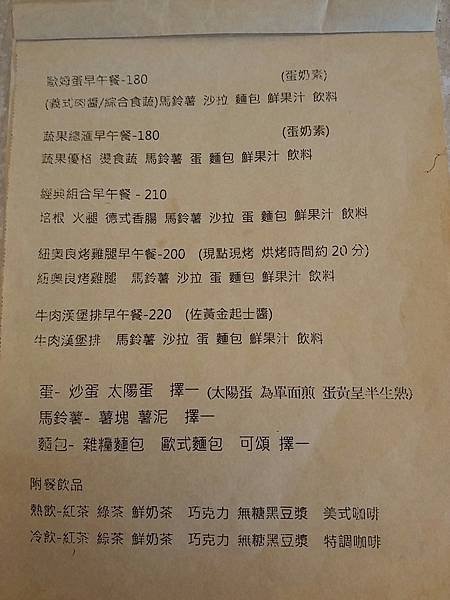 歐姆蛋早午餐-180 (蛋奶素)
(義式肉醬/綜合食蔬)馬鈴薯 沙拉 麵包 鮮果汁 飲料
蔬果總滙早午餐-180 (蛋奶素)
蔬果優格 燙食蔬 馬鈴薯 蛋 麵包 鮮果汁 飲料
經典組合早午餐 - 210
培根 火腿 德式香腸 馬鈴薯 沙拉 蛋 麵包 鮮果汁 飲料
紐奧良烤雞腿早午餐-200 (現點現烤 烘烤時間約 20 分)
紐奧良烤雞腿 馬鈴薯 沙拉 蛋 麵包 鮮果汁 飲料
牛肉漢堡排早午餐-220 (佐黃金起士醬)
牛肉漢堡排 馬鈴薯 沙拉 蛋 麵包 鮮果汁 飲料
蛋- 炒蛋 太陽蛋 擇一 (太陽蛋 為單面煎 蛋黃呈半生熟)
馬鈴薯- 薯塊 薯泥 擇一
麵包- 雜糧麵包 歐式麵包 可頌 擇一
附餐飲品
熱飲-紅茶 綠茶 鮮奶茶 巧克力 無糖黑豆漿 美式咖啡
冷飲-紅茶 綠茶 鮮奶茶 巧克力 無糖黑豆漿 特調咖啡